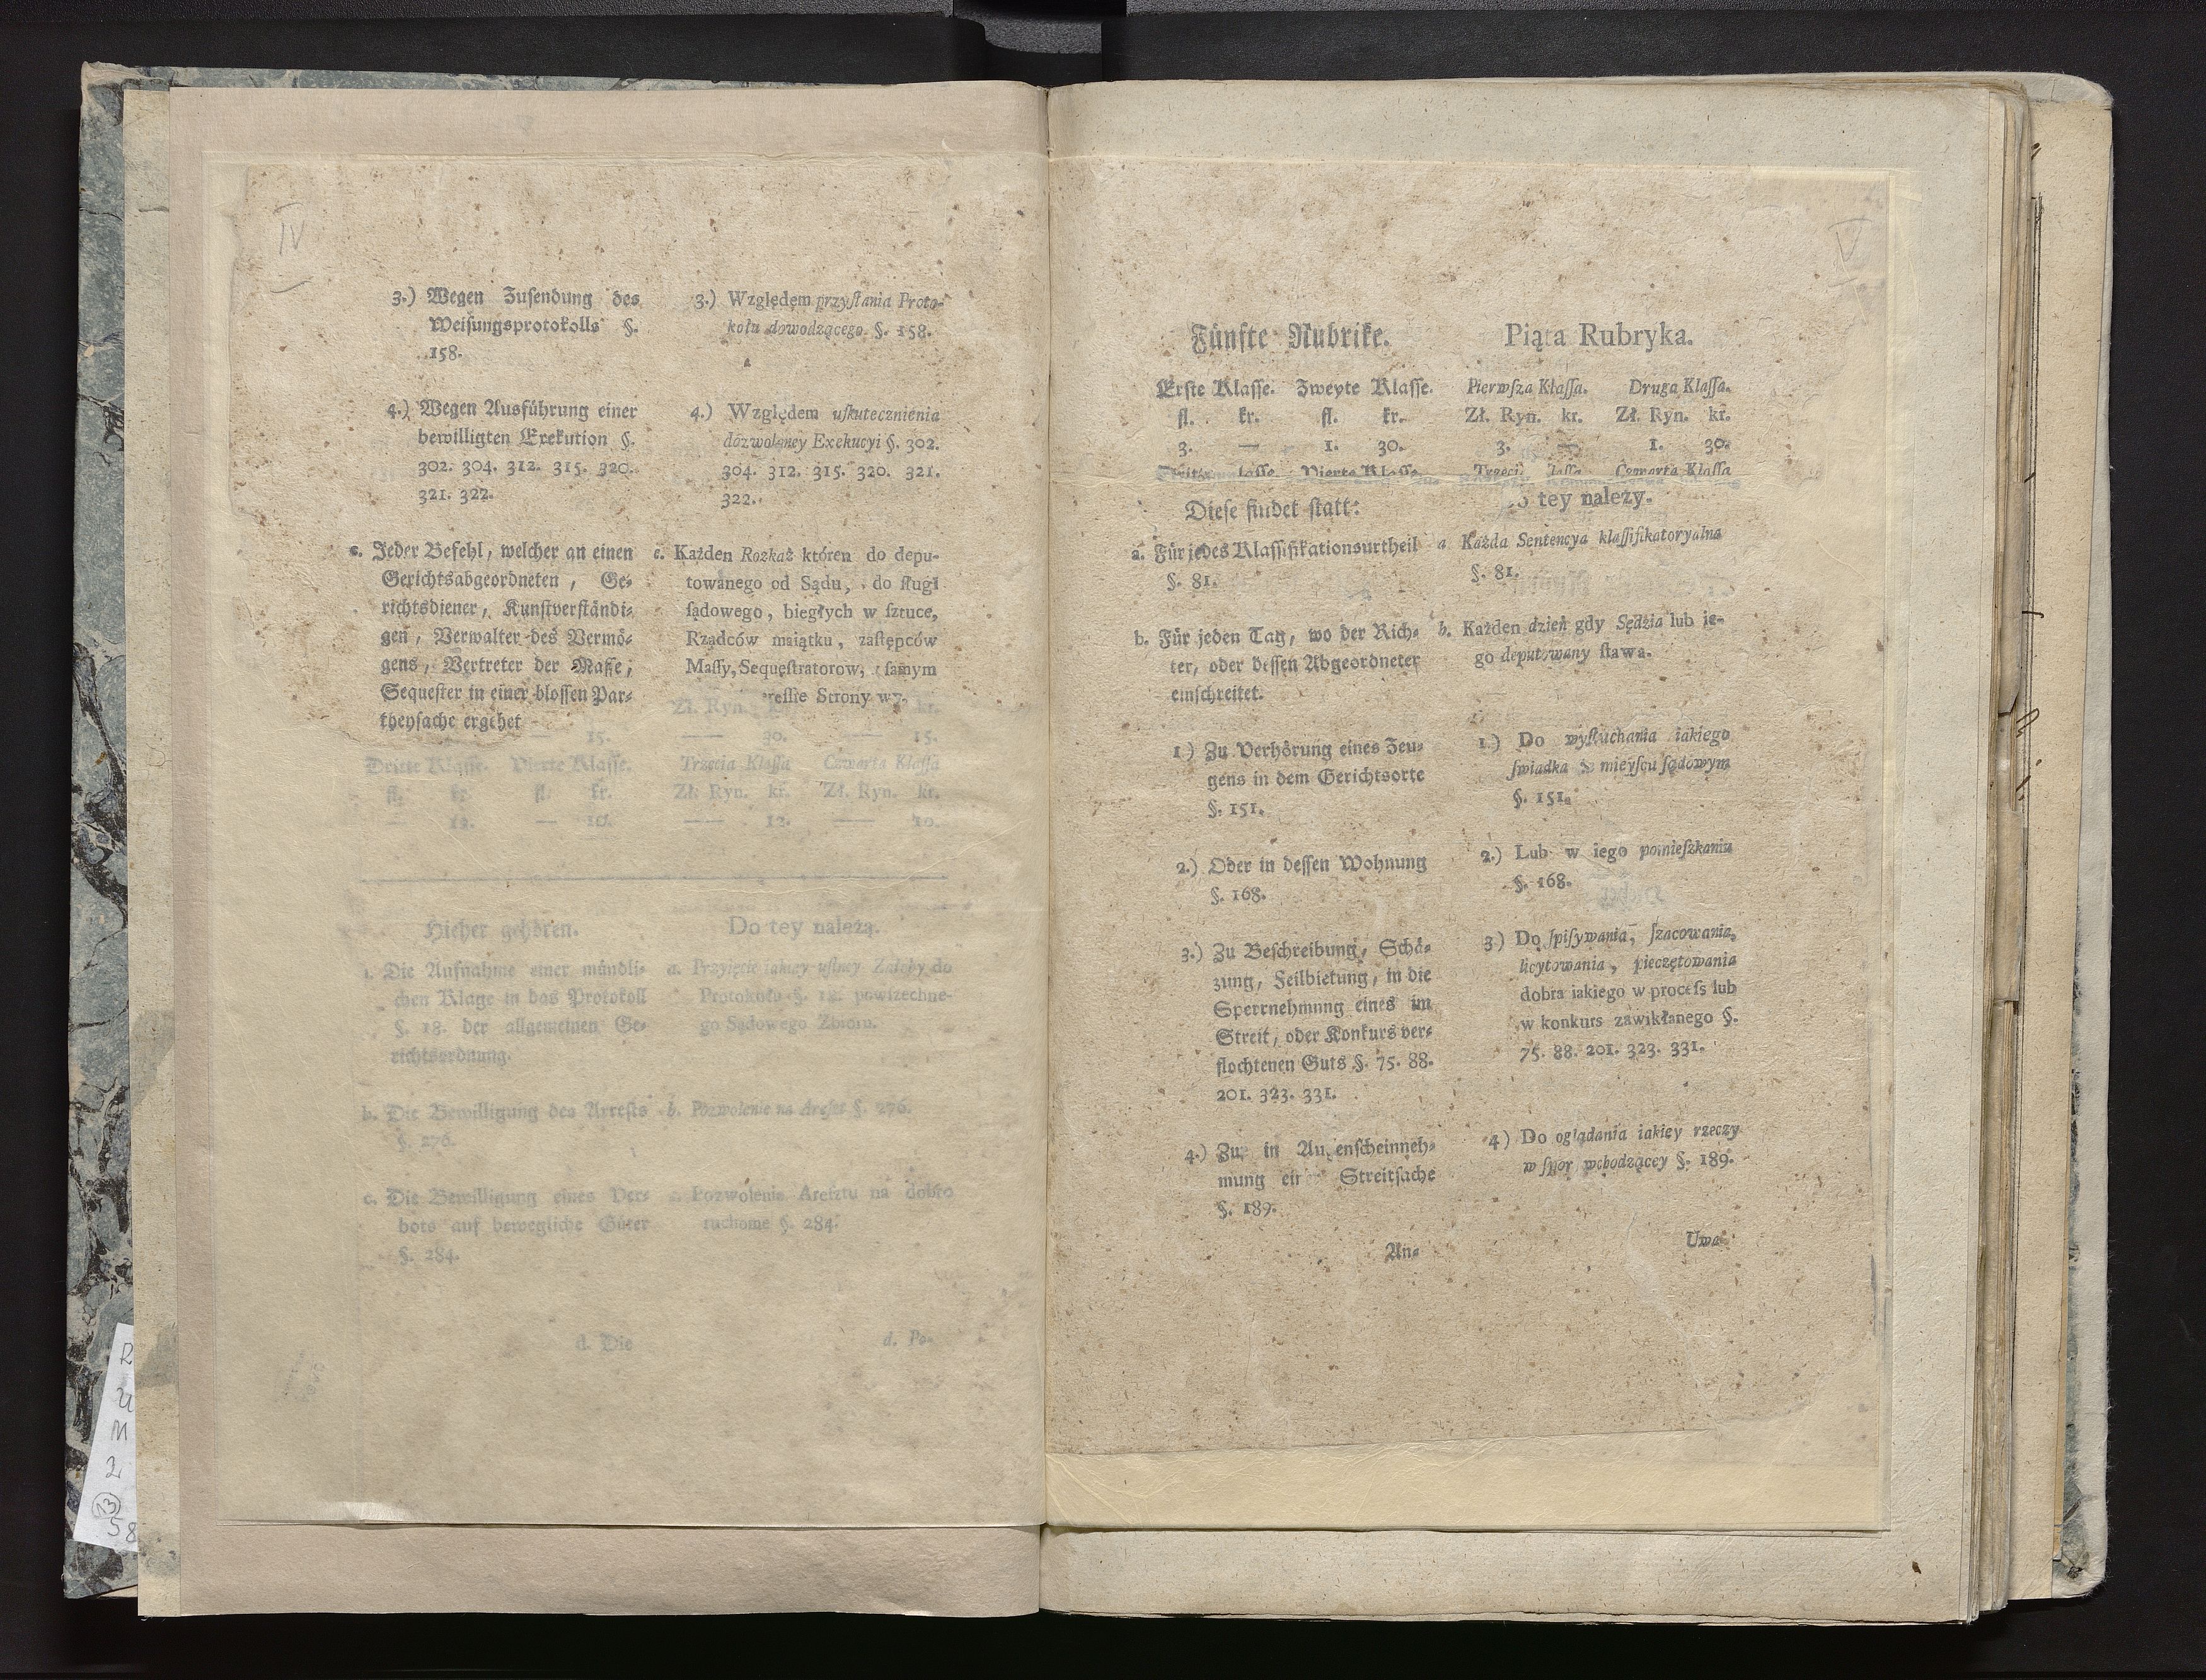 IV
3.) Wegen Zuſendung des
Weiſungsprotokolls §.
158.
4.) Wegen Ausführung einer
bewilligten Exekution §.
302. 304. 312. 315. 320.
321. 322.
e. Jeder Befehl, welcher an einen
Gerichtsabgeordneten, Ge-
richtsdiener, Kunſtverſtändi-
gen, Verwalter des Vermö-
gens, Vertreter der Maſſe,
Sequeſter in einer bloſſen Par-
theyſache ergehet
3.) Względęm przyſłania Proto-
kołu dowodzącego §. 158.
4.) Względem uſkutecznienia
dozwoloney Exekucyi §. 302.
304. 312. 315. 320. 321.
322.
e. Każden Rozkaz któren do depu-
towanego od Sądu, do ſługi
ſądowego, biegłych w ſztuce,
Rządców maiątku, zaſtępców
Maſſy, Sequeſtratorow, ſamym
Strony
Zł. Ryn. kr.
— 15. —— 30. —— 15.
Dritte Klaſſe. Vierte Klaſſe. Trzecia Klaſſa Czwarta Klaſſa
fl. kr. fl. kr. Zł. Ryn. kr. Zł. Ryn. kr.
— 12. — 10. —— 12. —— 10.
Hieher gehören.
Die Aufnahme einer mündli-
chen Klage in das Protokoll
§. 18. der allgemeinen Ge-
richtsordnung.
b. Die Bewilligung des Arreſts
§. 276.
c. Die Bewilligung eines Ver-
bots auf bewegliche Güter
§. 284.
d. Die
Do tey należą.
a. Przyięcie iakiey uſtney Załoby do
Protokołu §. 18. powſzechne-
go Sądowego Zbioru.
b. Pozwolenie na Areſzt §. 276.
Pozwolenie Areſztu na dobro
ruchome §. 284.
d. Po-
V
Fünfte Rubrike.
Erſte Klaſſe. Zweyte Klaſſe.
fl. kr. fl. kr.
3. — 1. 30.
Vierte Klaſſe
Dieſe findet ſtatt:
a. Für jedes Klaſſifikationsurtheil
§. 81.
b. Für jeden Tag, wo der Rich-
ter, oder deſſen Abgeordneter
einſchreitet.
1.) Zu Verhörung eines Zeu-
gens in dem Gerichtsorte
§. 151.
2.) Oder in deſſen Wohnung
§. 168.
3.) Zu Beſchreibung, Schä-
zung, Feilbietung, in die
Sperrnehmung eines im
Streit, oder Konkurs ver-
flochtenen Guts §. 75. 88.
201. 323. 331.
4.) Zu, in Augenſcheinneh-
mung einer Streitſache
§. 189.
An-
Piąta Rubryka.
Pierwſza Klaſſa. Druga Klaſſa.
Zł. Ryn. kr. Zł. Ryn. kr.
3. — 1. 30.
Czwarta Klaſſa
tey należy.
a Każda Sentencya klaſſifikatoryalna
§. 81.
b. Każden dzień gdy Sędzia lub ie-
go deputowany ſtawa.
1.) Do wyſłuchania iakiego
ſwiadka w mieyſcu ſądowym
§. 151.
2.) Lub w iego pomieſzkaniu
§. 168.
3.) Do ſpiſywania, ſzacowania,
licytowania, pieczętowania
dobra iakiego w proceſs lub
w konkurs zawikłanego §.
75. 88. 201. 323. 331.
4) Do oglądania iakiey rzeczy
w ſpor wchodzącey §. 189.
Uwa-